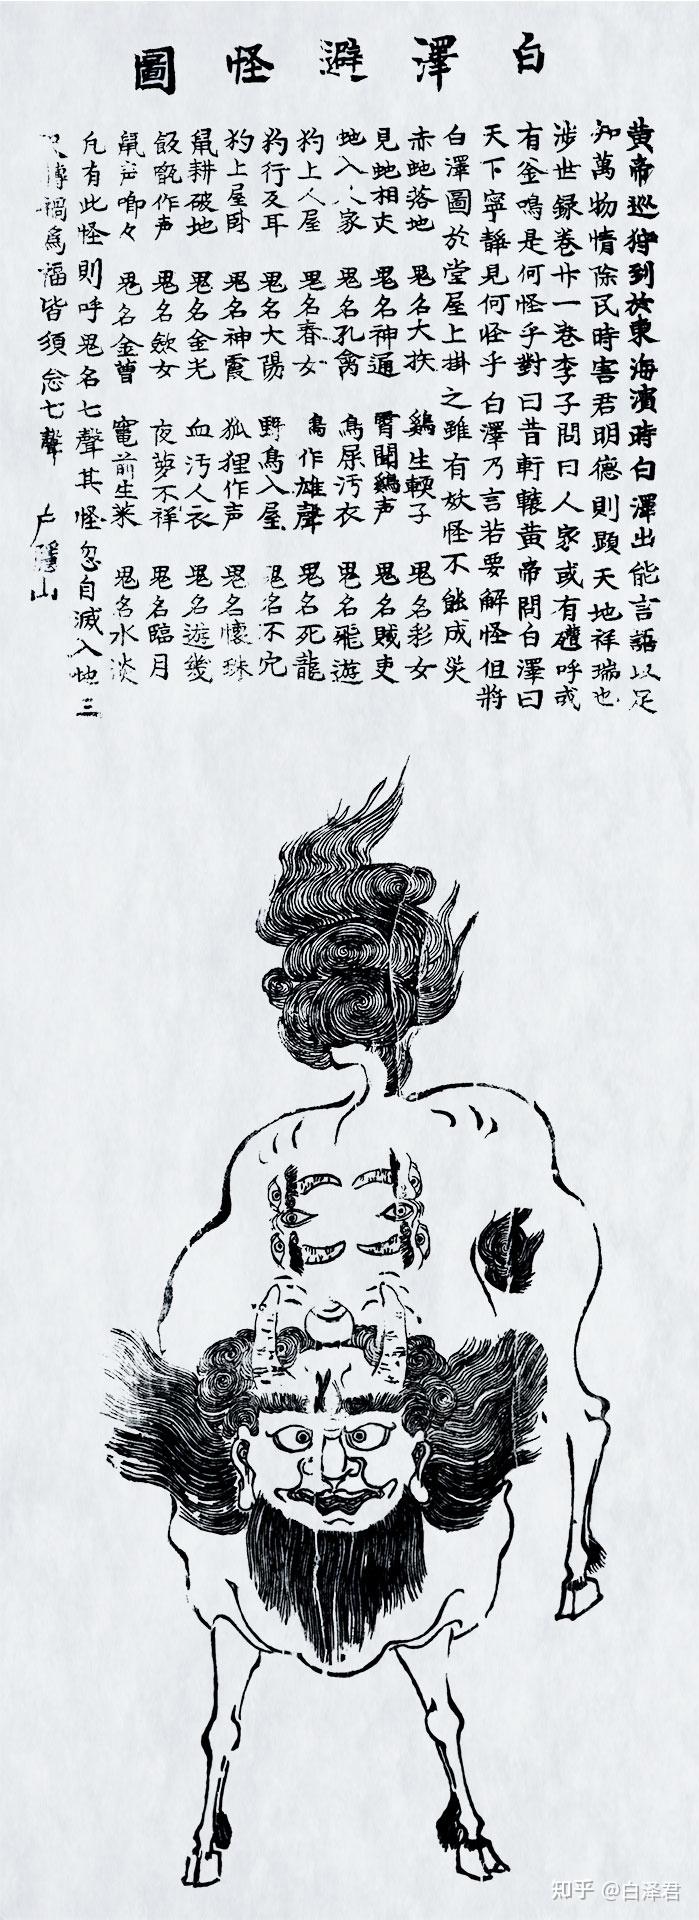 白澤避怪圖
黃帝巡狩到於東海濱時白澤出能言語以足
知萬物情除民時害君明德則顕天地祥瑞也
涉世録卷廿一卷李子問曰人家或有禮呼或
有釜鳴是何怪乎對曰昔軒轅黃帝問白澤曰
天下寧靜見何怪乎白澤乃言若要解怪但將
白澤圖於堂屋上掛之雖有妖怪不能成災
赤虵落地 鬼名大扶 鷄生軟子 鬼名彩女
見虵相交 鬼名神通 霄聞鷄声 鬼名賊吏
虵入人家 鬼名孔禽 鳥屎汚衣 鬼名飛遊
狗上人屋 鬼名春女 鳥作雄聲 鬼名死龍
狗行反耳 鬼名大陽 野鳥入屋 鬼名不宂
狗上屋卧 鬼名神霞 狐狸作声 鬼名懷珠
鼠耕破地 鬼名金光 血汚人衣 鬼名遊幾
飯甑作声 鬼名歛女 夜夢不祥 鬼名臨月
鼠声啣々 鬼名金曽 竃前生菜 鬼名水淡
凢有此怪則呼鬼名七聲其怪忽自滅入地三
尺轉禍為福皆須念七聲 戸隱山
知乎 @白泽君